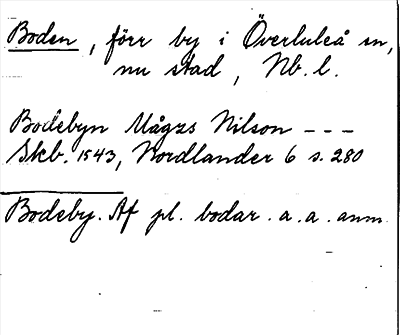 Boden, förr by i Överluleå sn,
nu stad, Nb. l.
Bodebyn Mågzs Nilson - - -
Skb. 1543, Nordlander 6 s. 280
Bodeby. Af pl. bodar. a. a. anm.